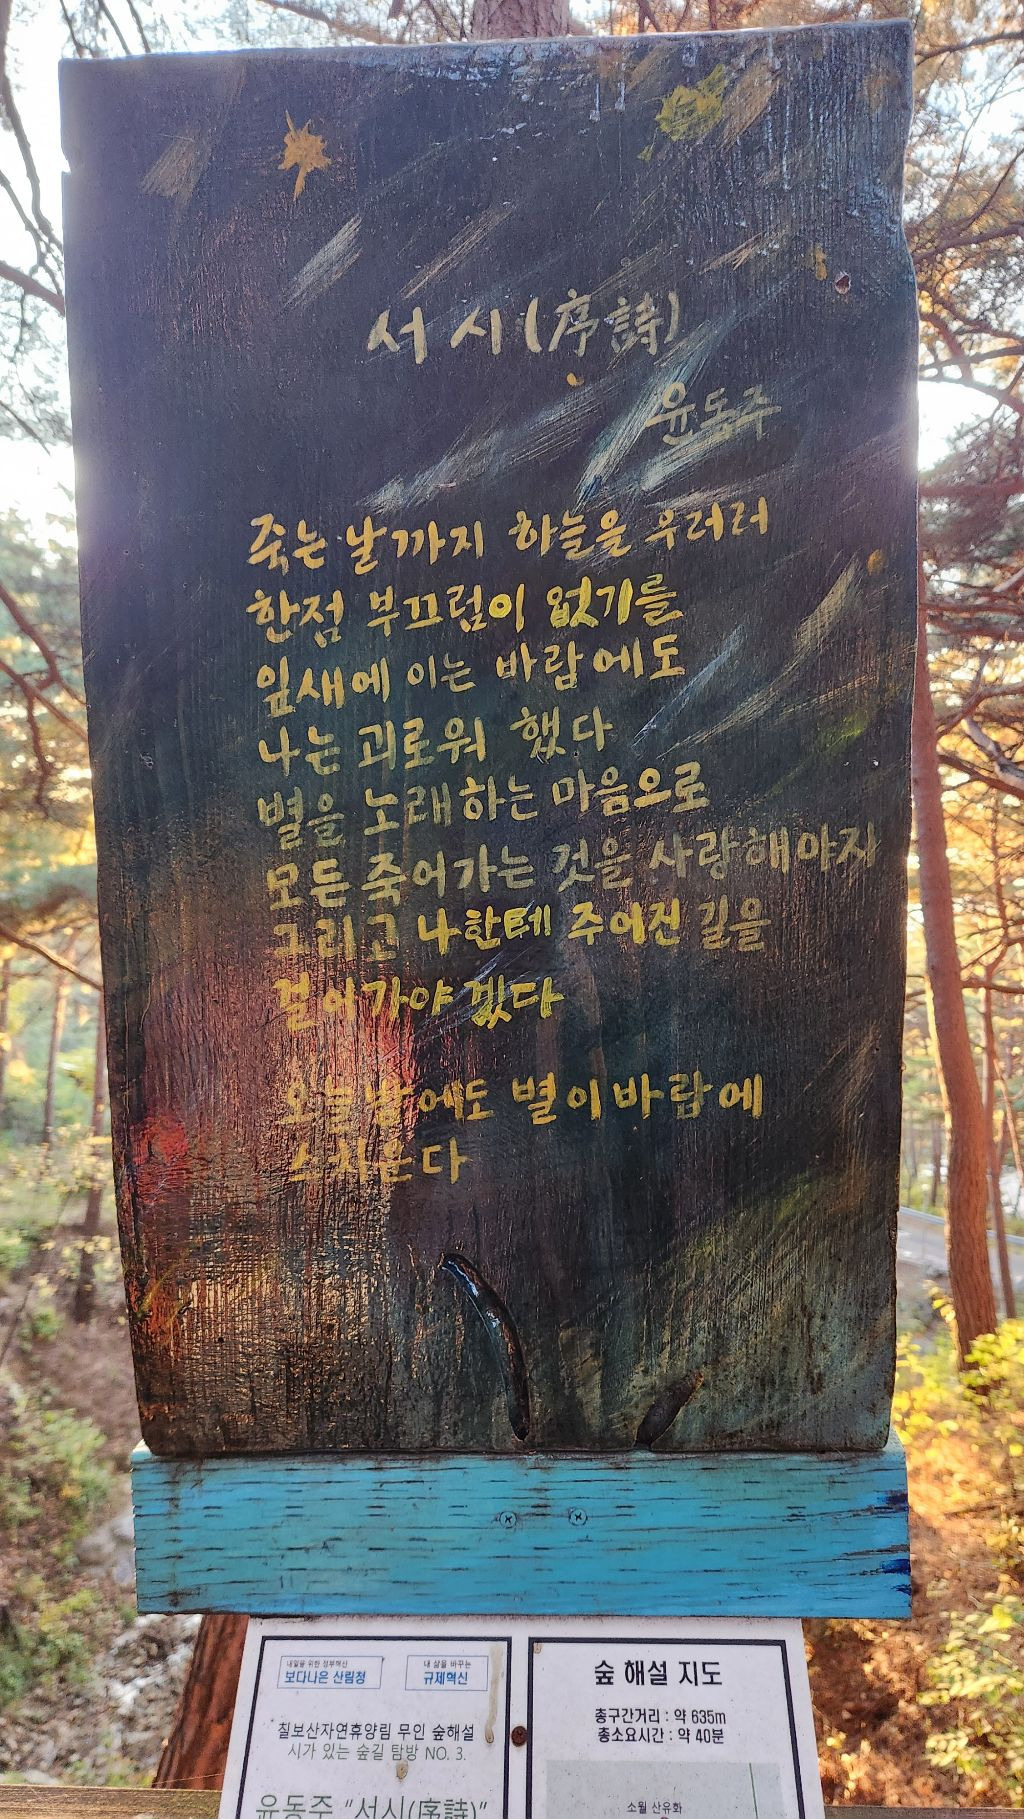 서시(序詩)
윤동주
죽는 날까지 하늘을 우러러
한점 부끄럼이 없기를
잎새에 이는 바람에도
나는 괴로워 했다
별을 노래하는 마음으로
모든 죽어가는 것을 사랑해야지
그리고 나한테 주어진 길을
걸어가야 겠다
오늘날에도 별이 바람에
스치운다
내일을 위한 정부혁신
보다나은 산림청
내 삶을 바꾸는
규제혁신
칠보산자연휴양림 무인 숲해설
시가 있는 숲길 탐방 NO. 3.
윤동주 “서시(序詩)”
숲 해설 지도
총구간거리 : 약 635m
총소요시간 : 약 40분
소월 산유화